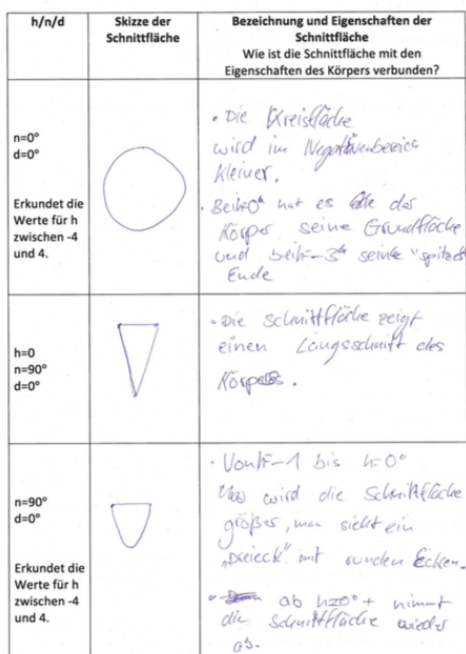 h/n/d
Skizze der
Schnittfläche
Bezeichnung und Eigenschaften der
Schnittfläche
Wie ist die Schnittfläche mit den
Eigenschaften des Körpers verbunden?
n=0°
d=0°
Erkundet die
Werte für h
zwischen -4
und 4.
• Die Kreisfläche
wird im Negativenbereich
kleiner.
• Bei h=0° hat es der
Körper seine Grundfläche
und bei h=-3° seine "spitzes"
Ende
h=0
n=90°
d=0°
• Die Schnittfläche zeigt
einen Längsschnitt des
Körpers.
n=90°
d=0°
Erkundet die
Werte für h
zwischen -4
und 4.
• Von h=-1 bis h=0°
wird die Schnittfläche
größer, man sieht ein
„Dreieck" mit runden Ecken.
• ab h=0°+ nimmt
die Schnittfläche wieder
ab.